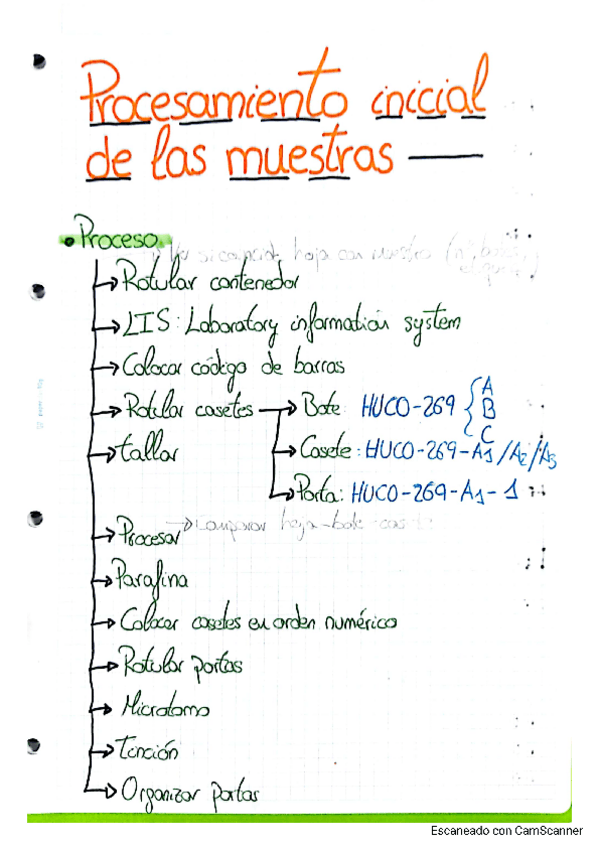 Procesamiento inicial
de las muestras
• Proceso
→ Ver si coincide hoja con muestra (nº, bote,
→ Rotular contenedor
→ LIS: Laboratory information system
→ Colocar código de barras
→ Rotular casetes → Bote: HUCO-269 { A
B
C
→ tallar
→ Casete: HUCO-269-A1/A2/A3
→ Porta: HUCO-269-A1-1
→ comparar hoja-bote-
→ Procesar
→ Parafina
→ Colocar casetes en orden numérico
→ Rotular portas
→ Microtomo
→ Tinción
→ Organizar portas
Escaneado con CamScanner